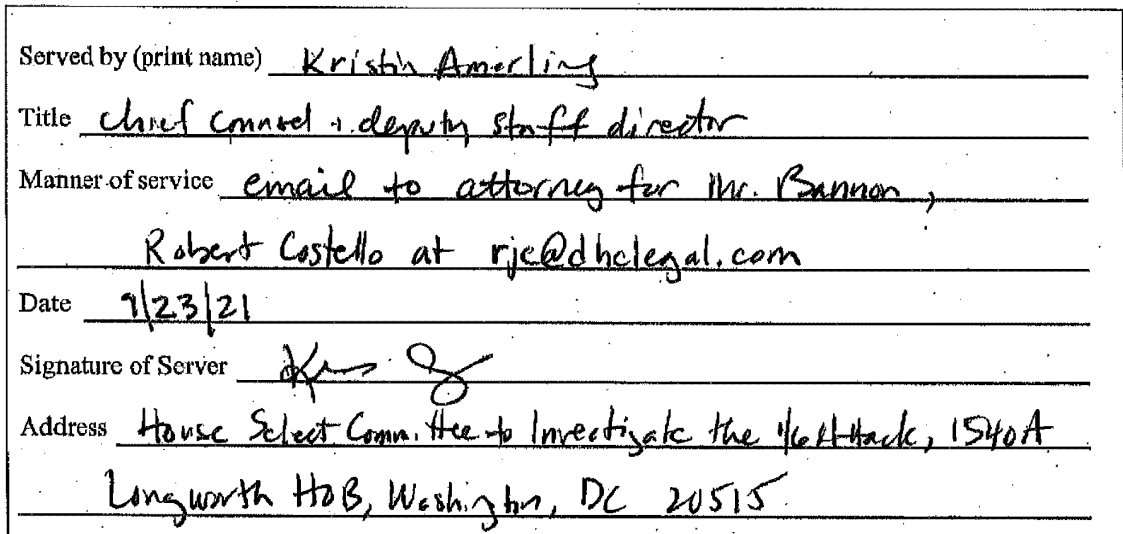 Served by (print name) Kristin Amerling
Title chief counsel & deputy staff director
Manner of service email to attorney for Mr. Bannon,
Robert Costello at rjc@dhclegal.com
Date 9/23/21
Signature of Server
Address House Select Committee to Investigate the 1/6 Attack, 1540A
Longworth HOB, Washington, DC 20515